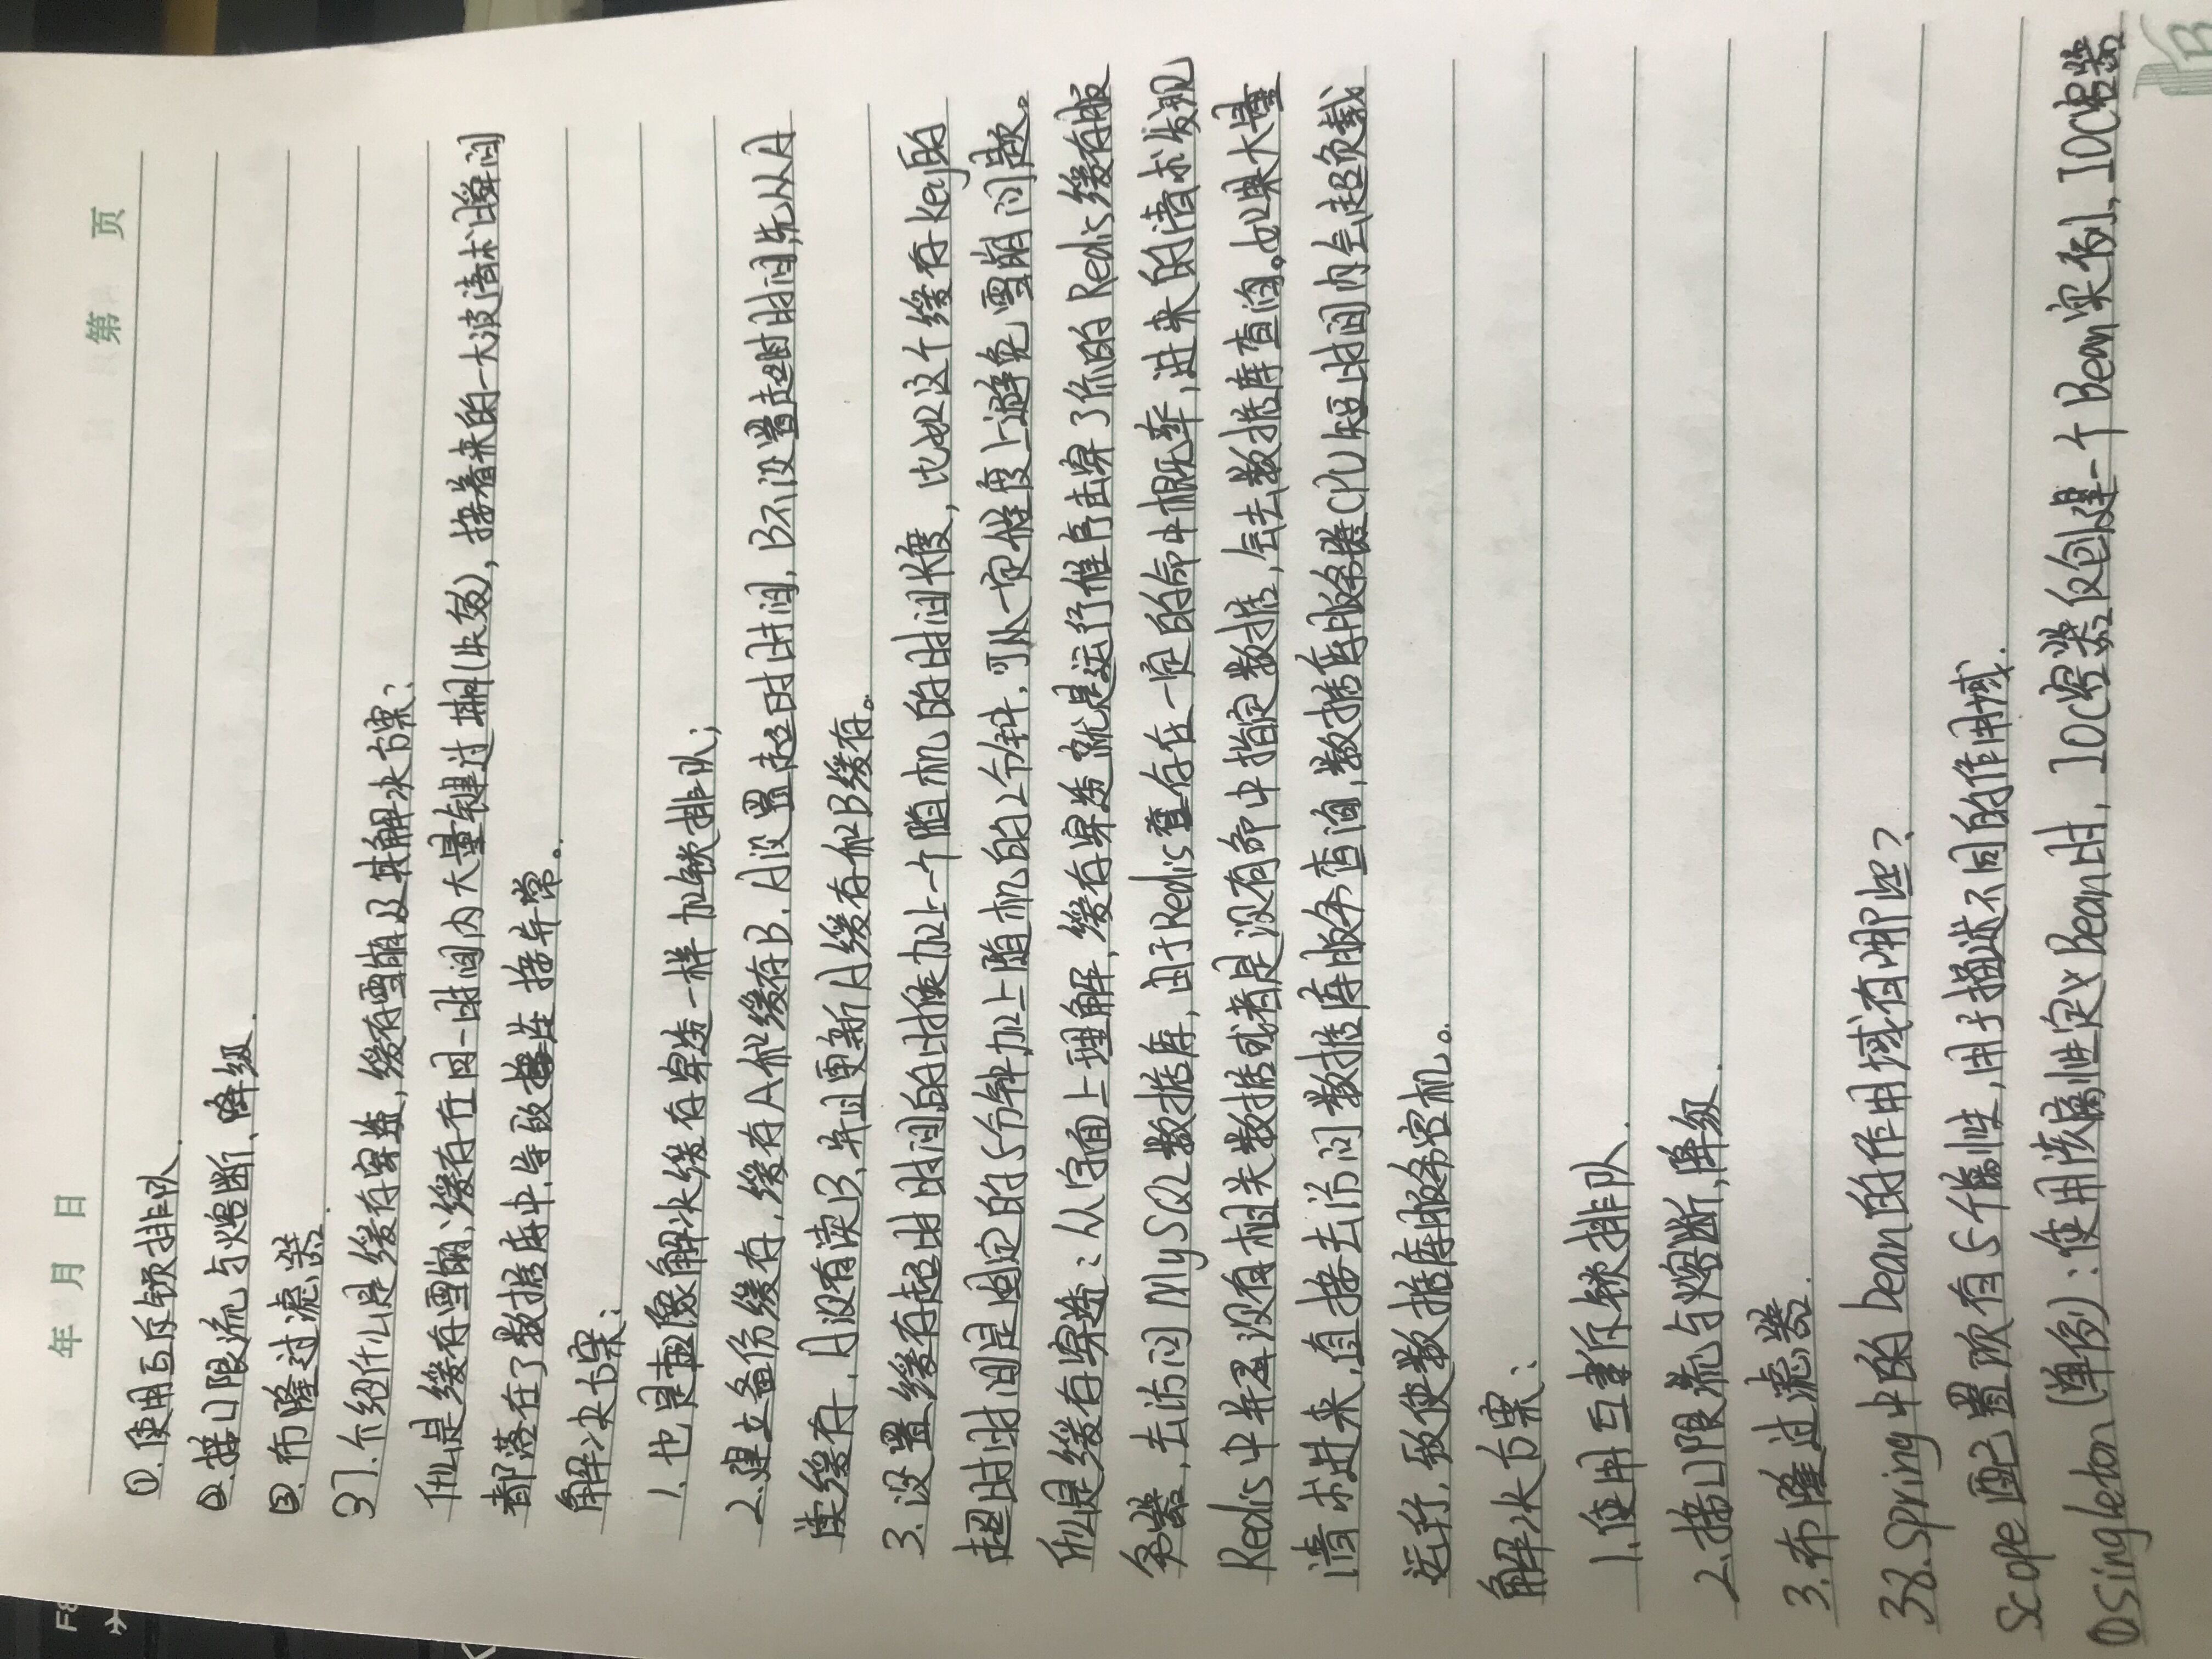 F8
年 月 日
第 页
①.使用互斥锁排队.
②.接口限流与熔断、降级.
③.布隆过滤器.
37.介绍什么是缓存穿透,缓存雪崩及其解决方案:
什么是缓存雪崩:缓存在同一时间内大量键过期(失效),接着来的一大波请求瞬间
都落在了数据库中,导致连接异常。
解决方案:
1.也是像解决缓存穿透一样加锁排队;
2.建立备份缓存,缓存A和缓存B,A设置超时时间,B不设置超时时间,先从A
读缓存,A没有读B,并且更新A缓存和B缓存。
3.设置缓存超时时间的时候加上一个随机的时间长度,比如这个缓存key的
超时时间是固定的5分钟,加上随机的2分钟,可从一定程度上避免雪崩问题。
什么是缓存穿透:从字面上理解,缓存穿透就是运行程序击穿了你的Redis缓存服
务器,去访问MySQL数据库,由于Redis存在一定的命中概率,进来的请求发现
Redis中并没有相关数据或者是没有命中指定数据,会去数据库查询。如果大量
请求进来,直接去访问数据库服务查询,数据库服务器CPU短时间内会超负载
运行,致使数据库服务宕机。
解决方案:
1.使用互斥锁排队.
2.接口限流与熔断,降级.
3.布隆过滤器.
38.Spring中的bean的作用域有哪些?
Scope配置项有5个属性,用于描述不同的作用域.
①singleton(单例):使用该属性定义Bean时,IOC容器仅创建一个Bean实例,IOC容器